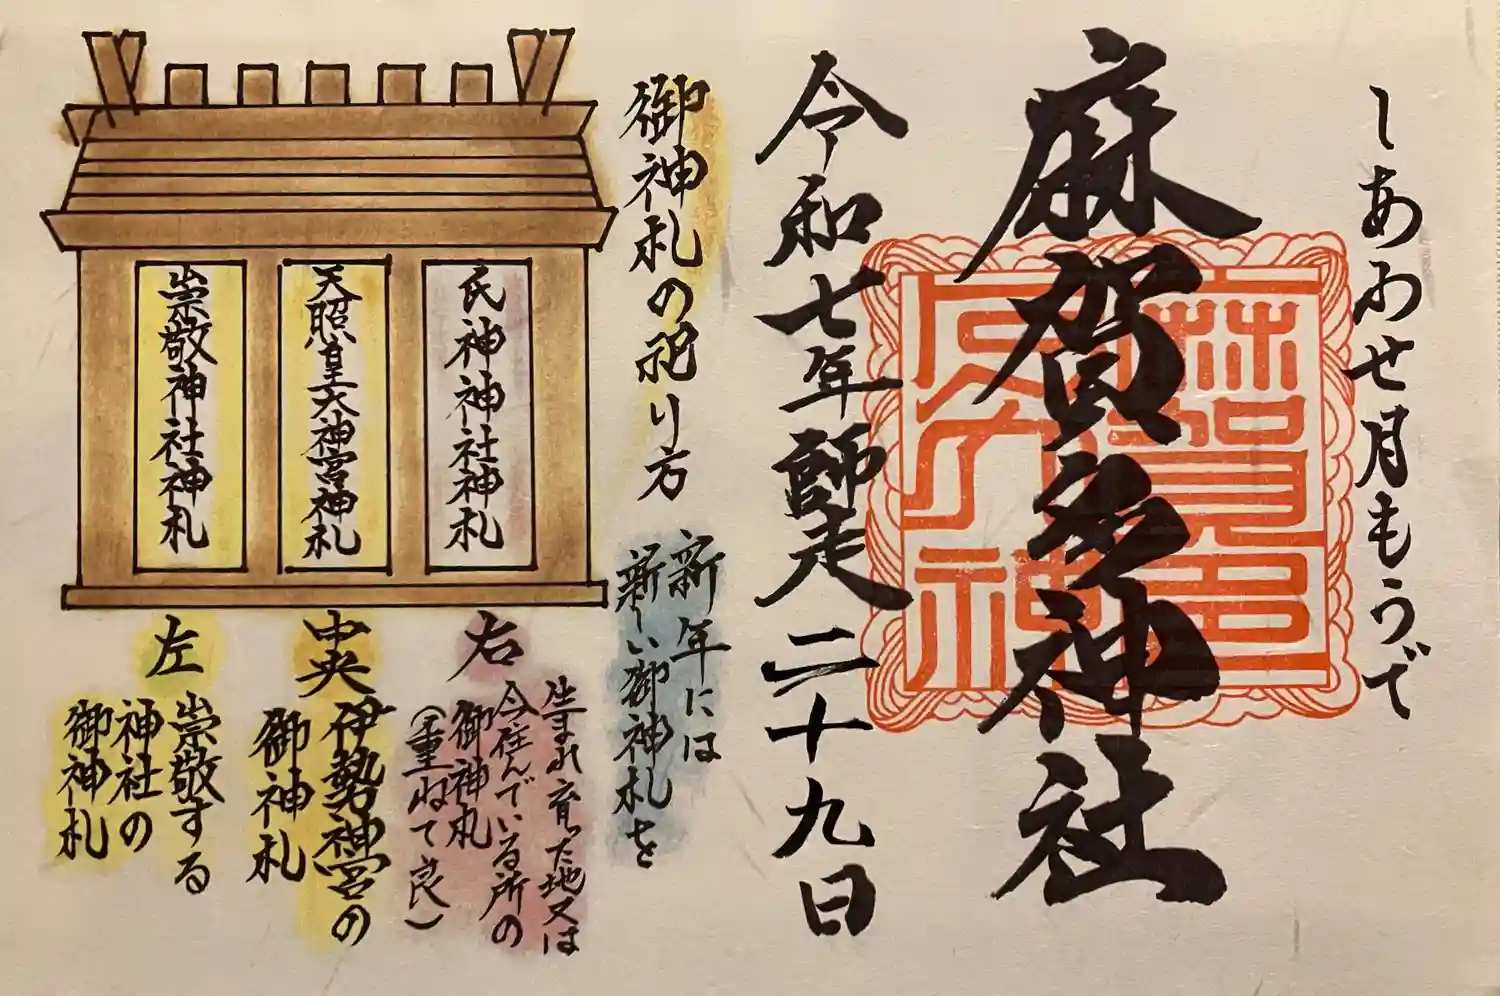 しあわせ月もうで
麻賀多神社
令和七年師走二十九日
御神札の祀り方
新年には
新しい御神札を
氏神神社神札
天照皇大神宮神札
崇敬神社神札
右
生まれ育った地又は
今住んでいる所の
御神札
(重ねて良)
中央
伊勢神宮の
御神札
左
崇敬する
神社の
御神札